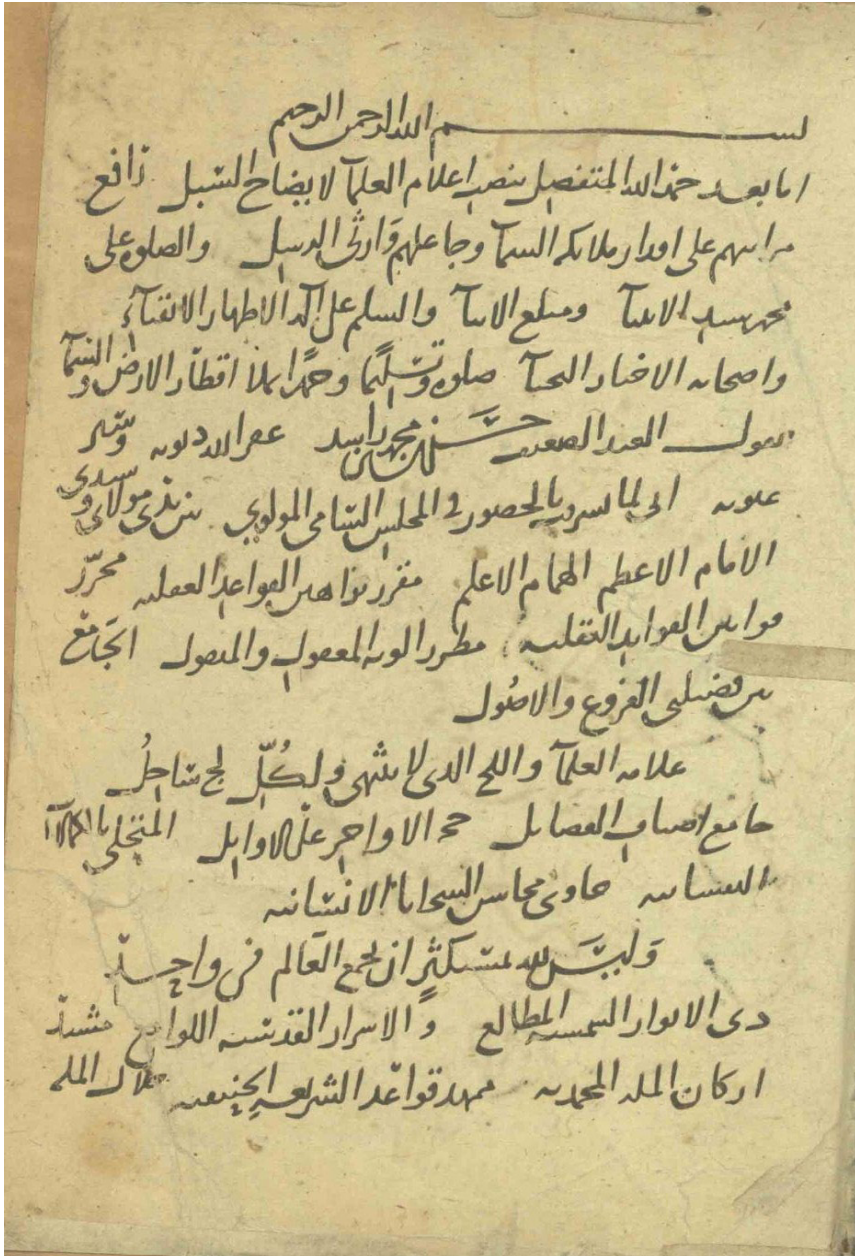 بسم الله الرحمن الرحيم
اما بعد حمد الله المتفضل بنصب اعلام العلمآ لايضاح السّبل رافع
مراتبهم على اقدار ملائكه السمآ وجاعلهم وَارثى الرسل والصلوه على
محمد سيد الانبيآ ومبلغ الانبآ والسلم على آله الاطهار الاتقيآءِ
واصحابه الاخيار النجبآ صلوه وتسْليمًا وحمدًا يملآ اقطار الارض والسّمآ
يقول العبد الضعيف حسَن بن محمد بن راشد عفر الله ذنوبه وستر
عيوبه انى لما تشرفت بالحضور فى المجلس السّامى المولوي بين يدَى مولاى وسيدى
الامام الاعظم الهمام الاعلم مقرر براهين القواعد العقليه محرّر
قوانين الفوايد النقليه مطرز الويه المعقول والمنقول الجَامع
بين فضيلتى الفروع والاصُول
علامه العلمآ واللج الذى لا ينتهى ولكُلّ لج سَاحِلُ
جامع اصناف الفضايل الاواخر على الاوايل المتحلى بالكمالات
النفسانيه حاوى محاسن السجايا الانسَانيه
وَليسَ لله بمستَكثرٍ ان يجمع العَالم فى واحدِ
ذى الانوار الشمسيه المطالع والاسرار القدسيه اللوامع مشيد
اركان المله المحمديه ممهد قواعد الشريعه الحنيفيه جلال المله